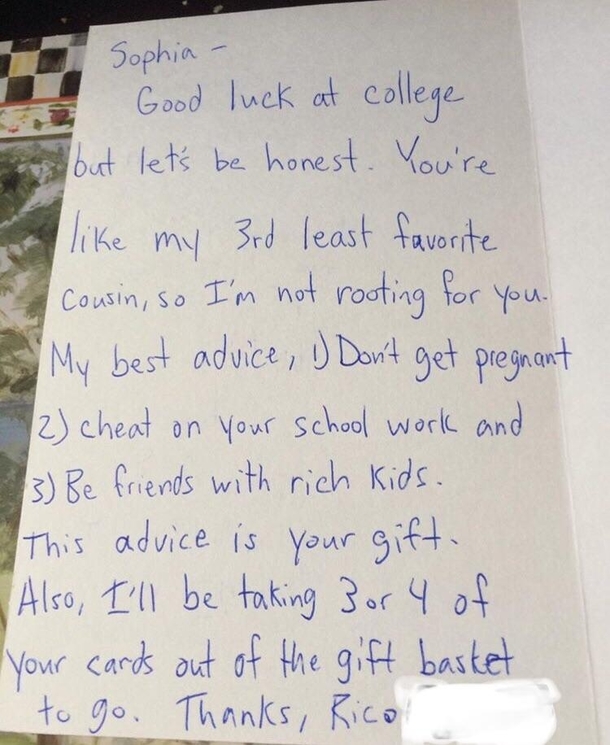 Sophia -
Good luck at college
but let's be honest. You're
like my 3rd least favorite
cousin, so I'm not rooting for you.
My best advice, 1) Don't get pregnant
2) cheat on your school work and
3) Be friends with rich kids.
This advice is your gift.
Also, I'll be taking 3 or 4 of
your cards out of the gift basket
to go. Thanks, Rico